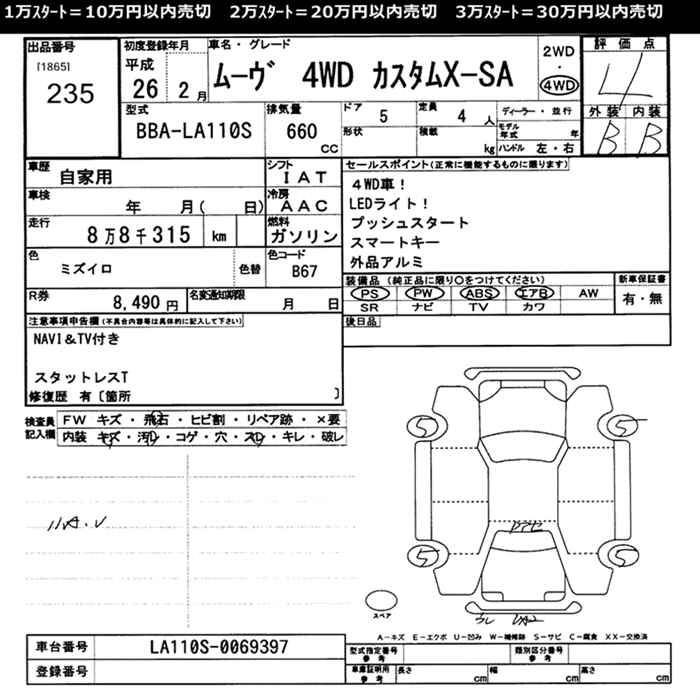 1万ｽﾀｰﾄ＝10万円以内売切　2万ｽﾀｰﾄ＝20万円以内売切　3万ｽﾀｰﾄ＝30万円以内売切
出品番号
[1865]
235
初度登録年月
平成
26 2 月
車名・グレード
ムーヴ 4WD カスタムX-SA
2WD
・
4WD
評価点
4
外装 内装
B B
型式
BBA-LA110S
排気量
660
CC
ドア 5
形状
定員 4 人
積載 kg
ディーラー・並行
モデル年式 年
ハンドル 左・右
車歴
自家用
シフト
IAT
車検
年 月( 日)
冷房
AAC
走行
8万8千315 km
燃料
ガソリン
色
ミズイロ
色替
色コード
B67
R券
8,490 円
名変通知期限
月 日
セールスポイント(正常に機能するものに限ります)
4WD車！
LEDライト！
プッシュスタート
スマートキー
外品アルミ
装備品 (純正品に限り○をつけてください)
PS PW ABS エアB AW
SR ナビ TV カワ
新車保証書
有・無
後日品
注意事項申告欄(不具合内容等は具体的に記入して下さい)
NAVI＆TV付き
スタットレスT
修復歴 有〔箇所 〕
検査員
記入欄
FW キズ・飛石・ヒビ割・リペア跡・×要
内装 キズ・汚れ・コゲ・穴・スレ・キレ・破レ
5 5
5 5
スペア
A－キズ E－エクボ U－凹み W－補修跡 S－サビ C－腐食 XX－交換済
車台番号
LA110S-0069397
登録番号
型式指定番号
参考
類別区分番号
参考
車庫証明用
参考
長さ cm
幅 cm
高さ cm